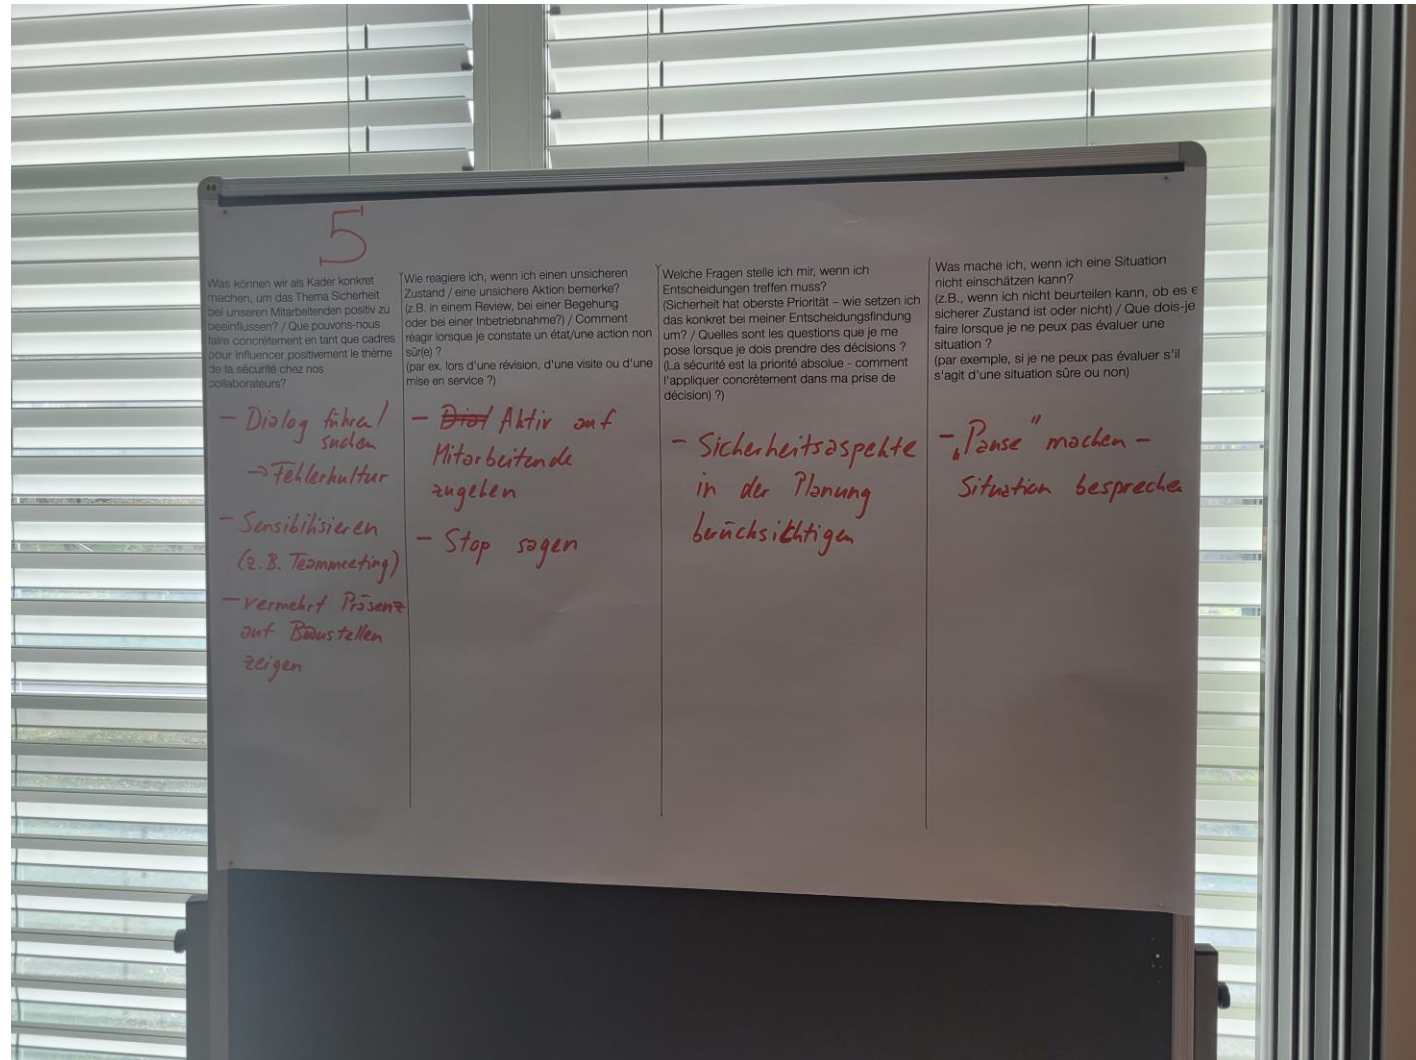 5
Was können wir als Kader konkret
machen, um das Thema Sicherheit
bei unseren Mitarbeitenden positiv zu
beeinflussen? / Que pouvons-nous
faire concrètement en tant que cadres
pour influencer positivement le thème
de la sécurité chez nos
collaborateurs?
- Dialog führen/
suchen
→ Fehlerkultur
- Sensibilisieren
(z.B. Teammeeting)
- vermehrt Präsenz
auf Baustellen
zeigen
Wie reagiere ich, wenn ich einen unsicheren
Zustand / eine unsichere Aktion bemerke?
(z.B. in einem Review, bei einer Begehung
oder bei einer Inbetriebnahme?) / Comment
réagir lorsque je constate un état/une action non
sûr(e) ?
(par ex. lors d'une révision, d'une visite ou d'une
mise en service ?)
- Aktiv auf
Mitarbeitende
zugehen
- Stop sagen
Welche Fragen stelle ich mir, wenn ich
Entscheidungen treffen muss?
(Sicherheit hat oberste Priorität – wie setzen ich
das konkret bei meiner Entscheidungsfindung
um? / Quelles sont les questions que je me
pose lorsque je dois prendre des décisions ?
(La sécurité est la priorité absolue - comment
l'appliquer concrètement dans ma prise de
décision) ?)
- Sicherheitsaspekte
in der Planung
berücksichtigen
Was mache ich, wenn ich eine Situation
nicht einschätzen kann?
(z.B., wenn ich nicht beurteilen kann, ob es e
sicherer Zustand ist oder nicht) / Que dois-je
faire lorsque je ne peux pas évaluer une
situation ?
(par exemple, si je ne peux pas évaluer s'il
s'agit d'une situation sûre ou non)
- „Pause" machen -
Situation besprechen